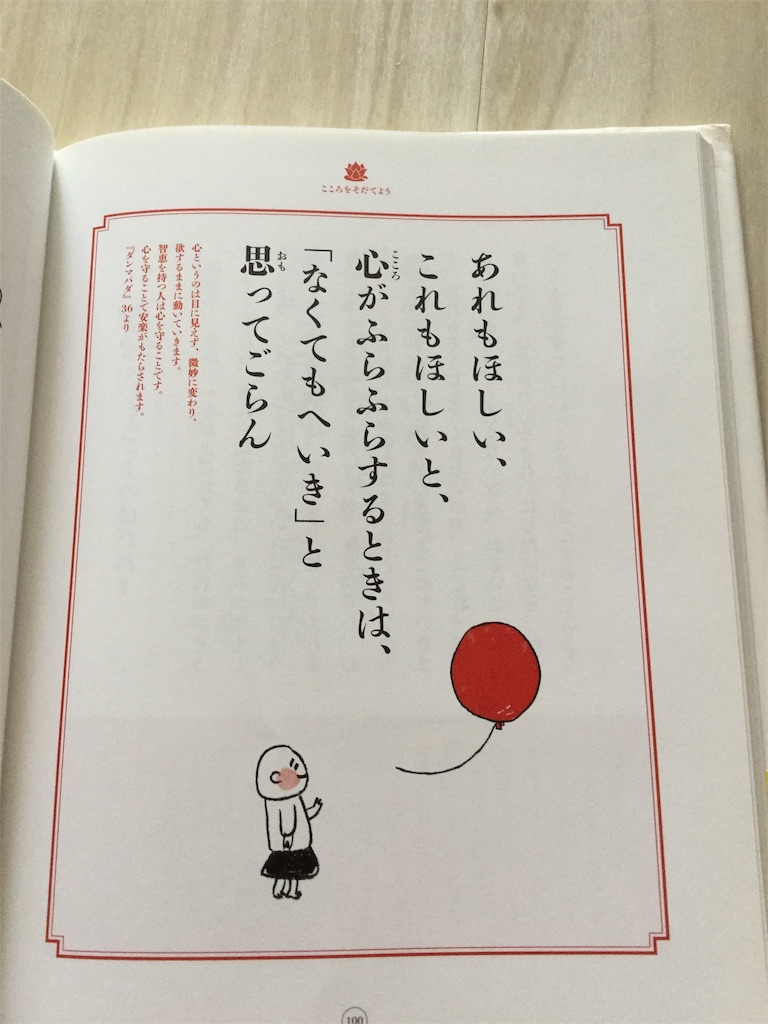 こころをそだてよう
あれもほしい、
これもほしいと、
心がふらふらするときは、
こころ
「なくてもへいき」と
思ってごらん
おも
心というのは目に見えず、微妙に変わり、
欲するままに動いていきます。
智恵を持つ人は心を守ることです。
心を守ることで安楽がもたらされます。
『ダンマパダ』36より
100